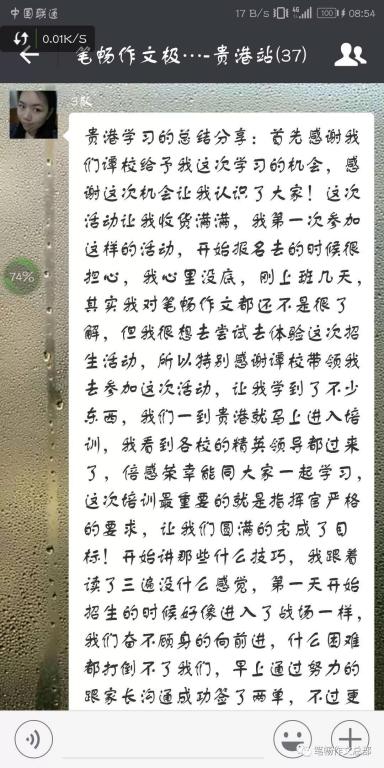 中国联通 17 B/s 4G 100 08:54
0.01K/S
笔畅作文极…-贵港站(37)
3队
贵港学习的总结分享：首先感谢我
们谭校给予我这次学习的机会，感
谢这次机会让我认识了大家！这次
活动让我收货满满，我第一次参加
这样的活动，开始报名去的时候很
担心，我心里没底，刚上班几天，
其实我对笔畅作文都还不是很了
解，但我很想去尝试去体验这次招
生活动，所以特别感谢谭校带领我
去参加这次活动，让我学到了不少
东西，我们一到贵港就马上进入培
训，我看到各校的精英领导都过来
了，倍感荣幸能同大家一起学习，
这次培训最重要的就是指挥官严格
的要求，让我们圆满的完成了目
标！开始讲那些什么技巧，我跟着
读了三遍没什么感觉，第一天开始
招生的时候好像进入了战场一样，
我们奋不顾身的向前进，什么困难
都打倒不了我们，早上通过努力的
跟家长沟通成功签了两单，不过更
74%
笔畅作文总部